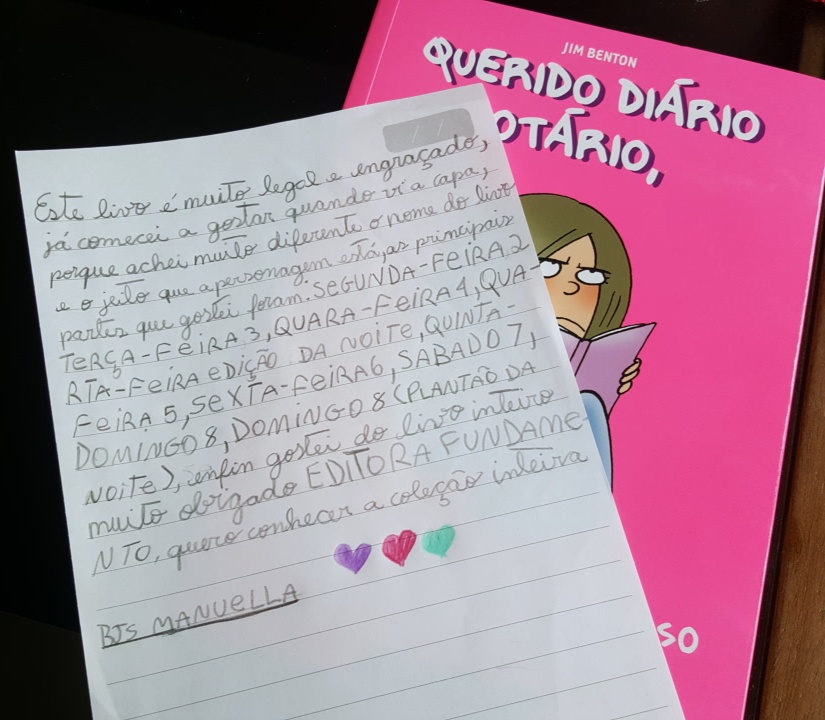 JIM BENTON
QUERIDO DIÁRIO
OTÁRIO,
Este livro é muito legal e engraçado,
já comecei a gostar quando vi a capa,
porque achei muito diferente o nome do livro
e o jeito que a personagem está, as principais
partes que gostei foram: SEGUNDA-FEIRA 2
TERÇA-FEIRA 3, QUARA-FEIRA 4, QUA-
RTA-FEIRA EDIÇÃO DA NOITE, QUINTA-
FEIRA 5, SEXTA-FEIRA 6, SABADO 7,
DOMINGO 8, DOMINGO 8 (PLANTÃO DA
NOITE), enfin gostei do livro inteiro
muito obrigado EDITORA FUNDAME-
NTO, quero conhecer a coleção inteira
BJS MANUELLA
SO